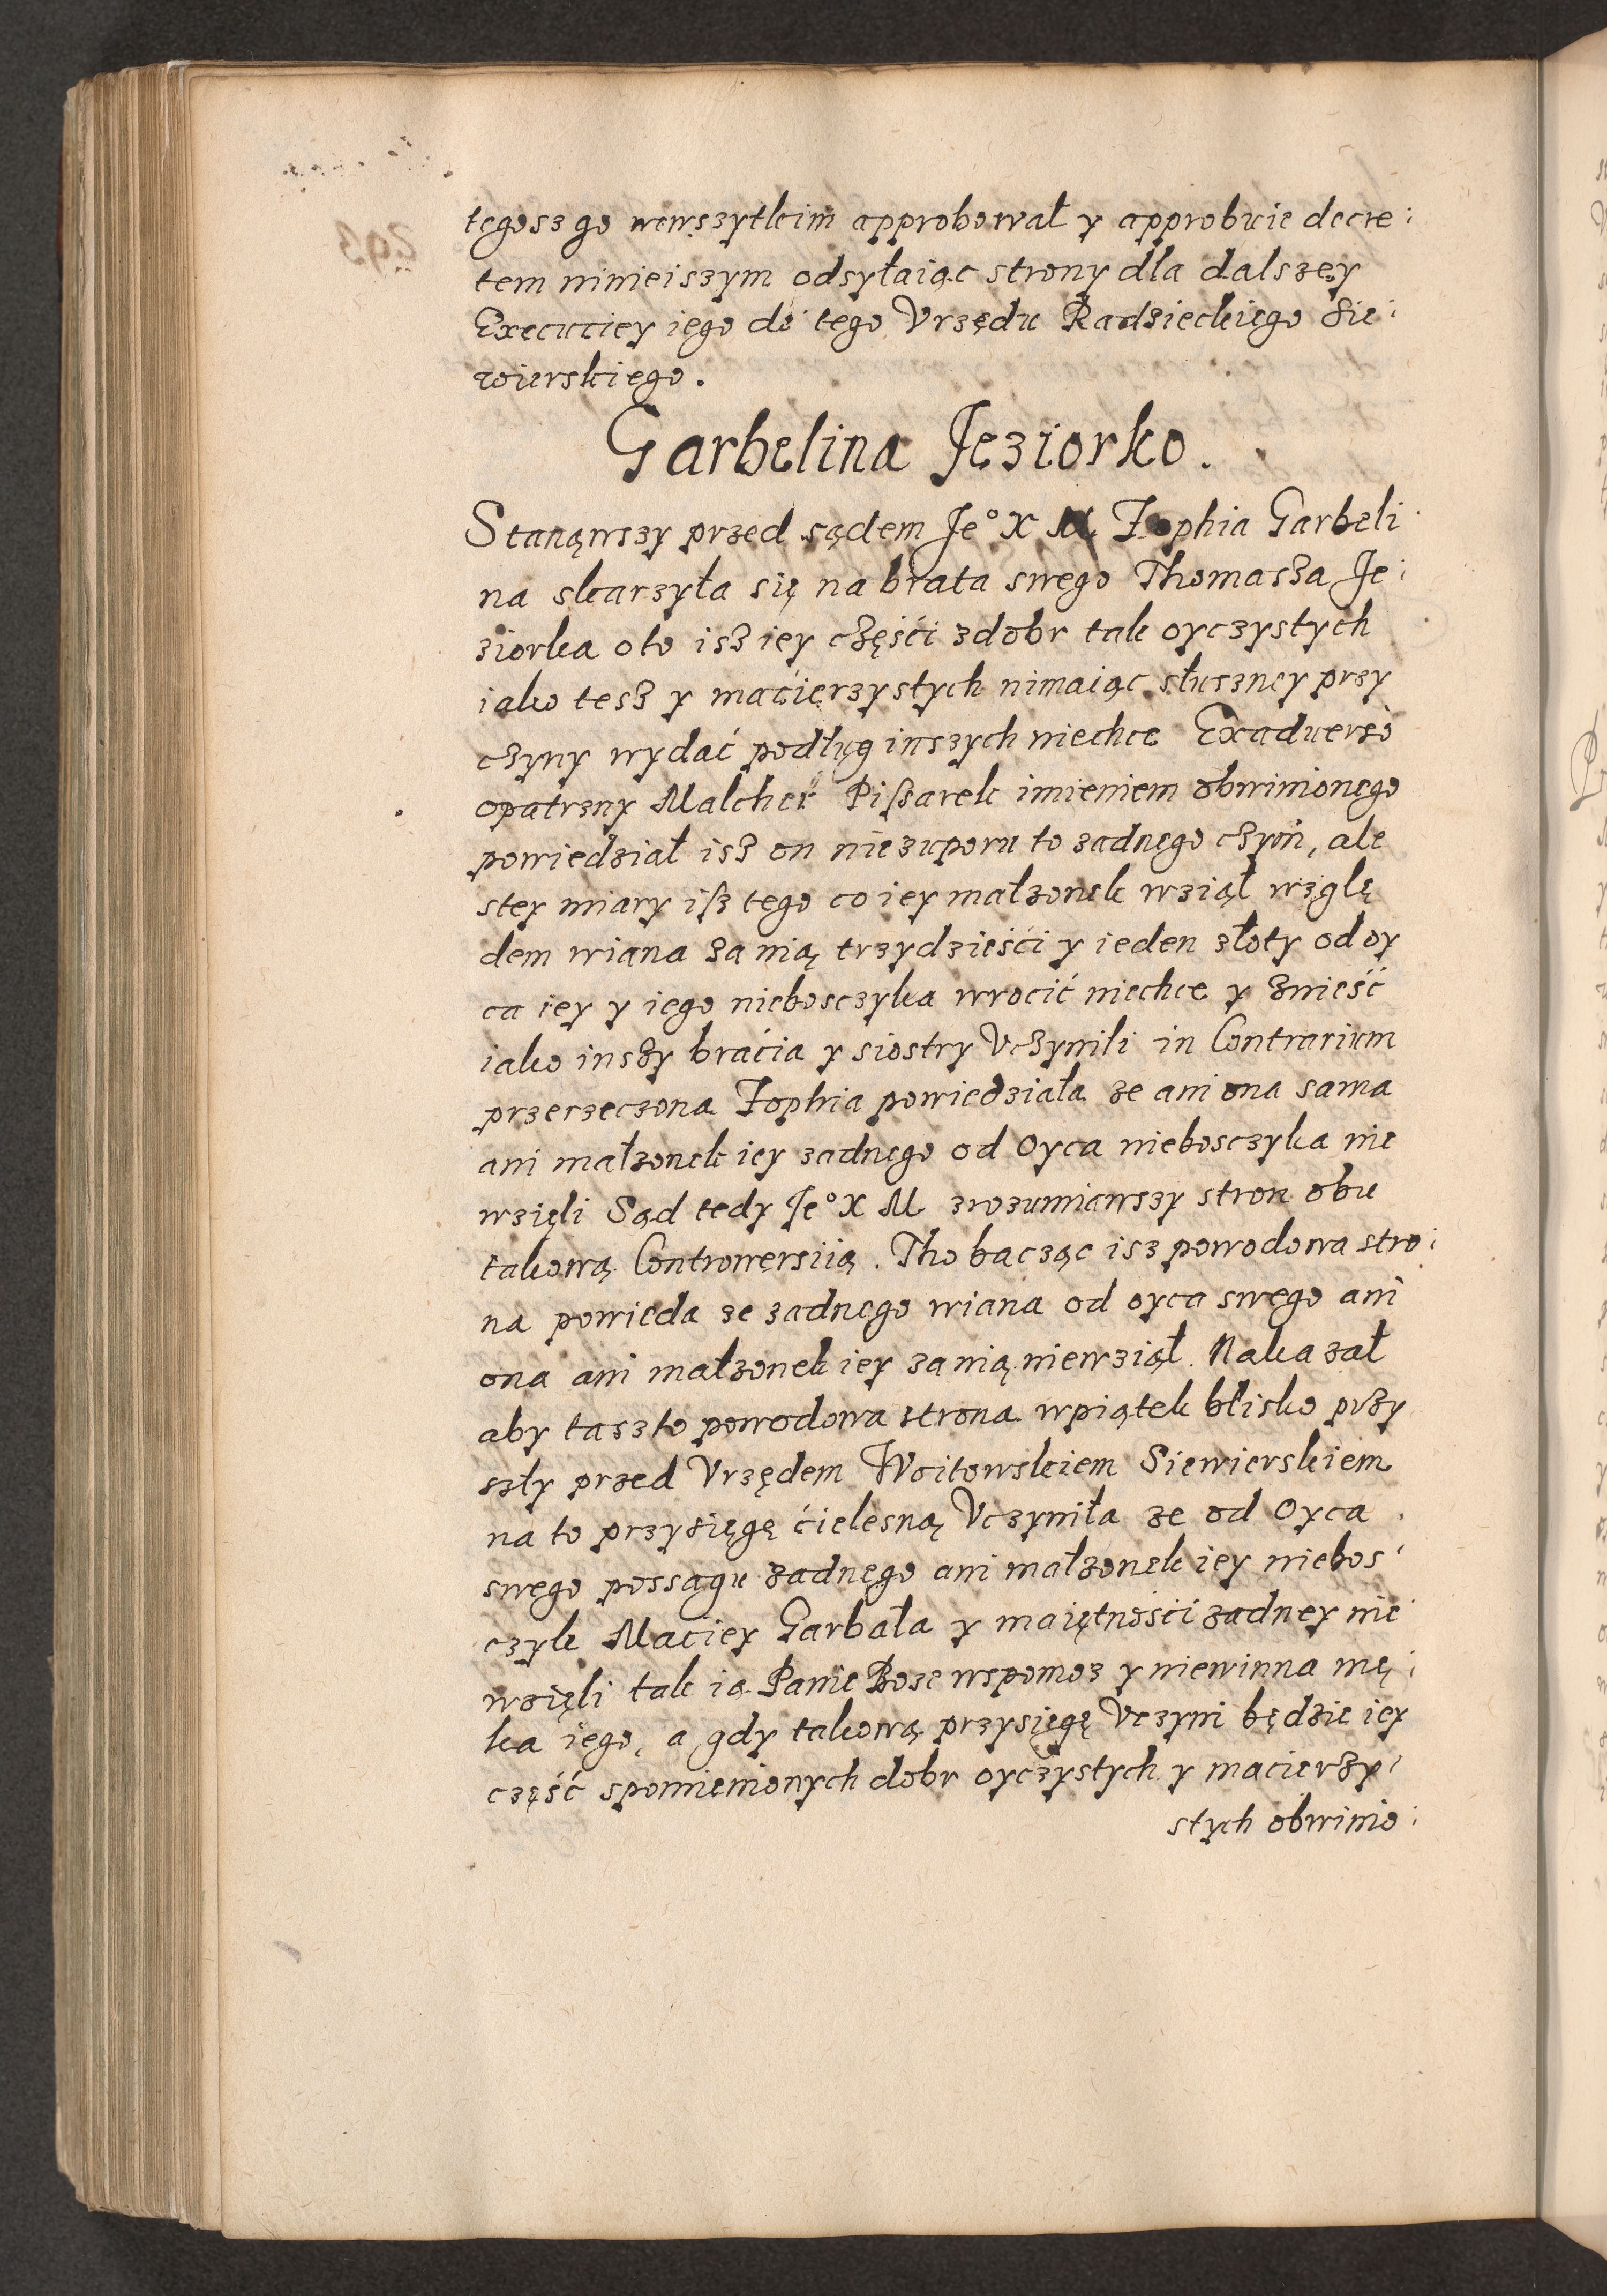 tegosz go wewszytkim approbował y approbuie decre:
tem ninieiszym odsyłaiąc strony dla dalszey
Execuciey iego do tego Vrzędu Radzieckiego Sie:
wierskiego.
Garbelina Jeziorko.
Stanąwszy przed sądem Je° X M Zophia Garbeli
na skarzyła się na brata swego Thomasza Je:
ziorka oto isz iey części zdobr tak oyczystych
iako tesz y macierzystych nimaiąc słuszney przy
czyny wydać podług inszych niechce Exaduerso
opatrzny Malcher Piszarek imieniem obwinionego
powiedział isz on nie zuporu to zadnego czyni, ale
stey miary isz tego co iey małzonek wziął wzglę
dem wiana za nią trzydzieści y ieden złoty od oy
ca iey y iego nieboszczyka wrocić niechce y znieść
iako inszy bracia y siostry Vczynili in Contrarium
przerzeczona Zophia powiedziała ze ani ona sama
ani małzonek iey zadnego od Oyca nieboszczyka nie
wzięli Sąd tedy Je° X M zrozumiawszy stron obu
takową Controwersiią. Tho bacząc isz powodowa stro:
na powieda ze zadnego wiana od oyca swego ani
ona ani małzonek iey za nią niewziął. Nakazał
aby taszto powodowa strona wpiątek blisko przy
szły przed Vrzędem Woitowskiem Siewierskiem
na to przysięgę cielesną Vczyniła ze od Oyca
swego possagu zadnego ani małzonek iey niebos:
czyk Maciey Garbała y maiętności zadney nie
wzięli tak ią Panie Boze wspomoz y niewinna mę:
ka iego, a gdy takową przysięgę Vczyni będzie iey
część spomienionych dobr oyczystych y macierzy:
stych obwinio: